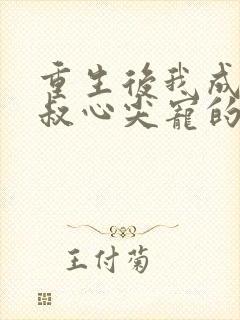 重生後我成
叔心尖寵的
王付菊